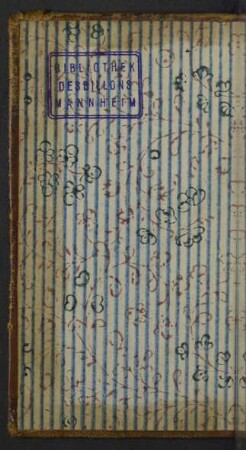 BIBLIOTHEK
DESBILLONS
MANNHEIM